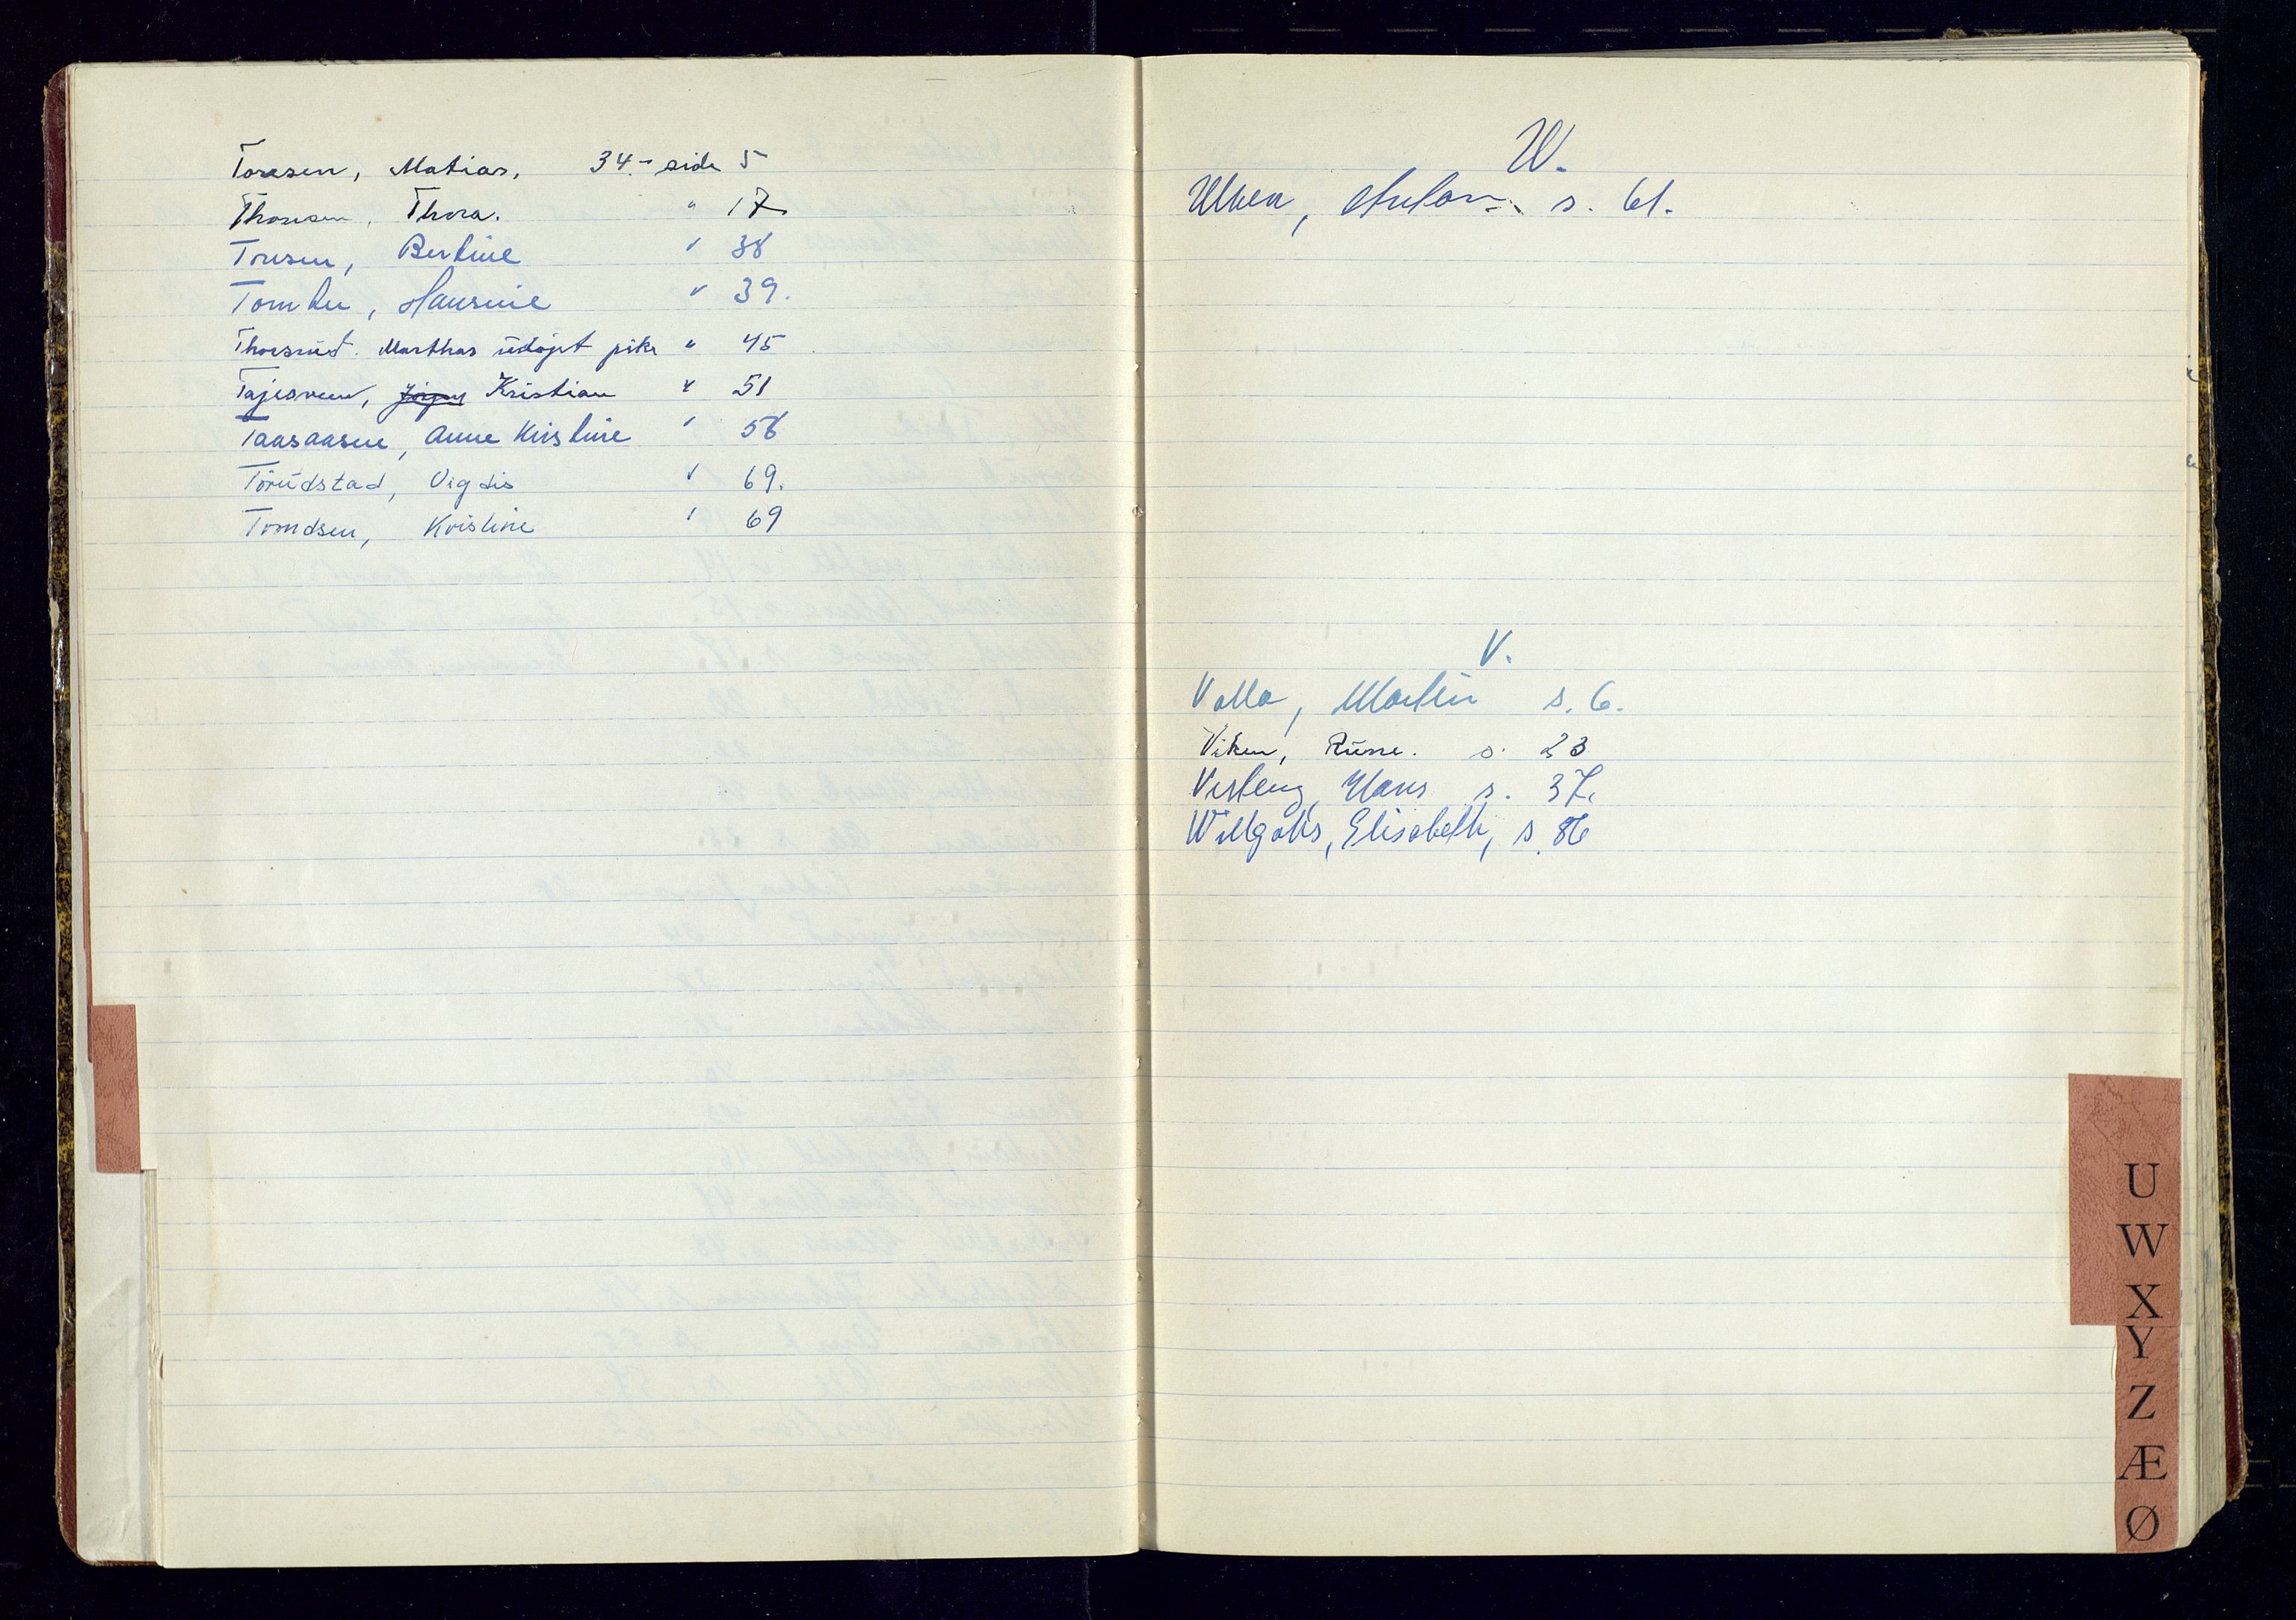 Toresen, Matias, 34.- side 5
Thoresen, Thora. " 17
Toresen, Bertine " 38
Tomter, Hansine " 39.
Thoresrud. Marthas üdöpt pike " 45
Tajesveen, Jörgen Kristian " 51
Taasaasen, Anne Kristine " 58
Törüdstad, Vigdis " 69.
Trondsen, Kristine " 69
W.
Ulven, Anton s. 61.
V.
Valla, Martin s. 6.
Viken, Rüne. s. 23
Vesteng, Hans s. 37.
Willgohs, Elisabeth, s. 86
U
W
X
Y
Z
Æ
Ø